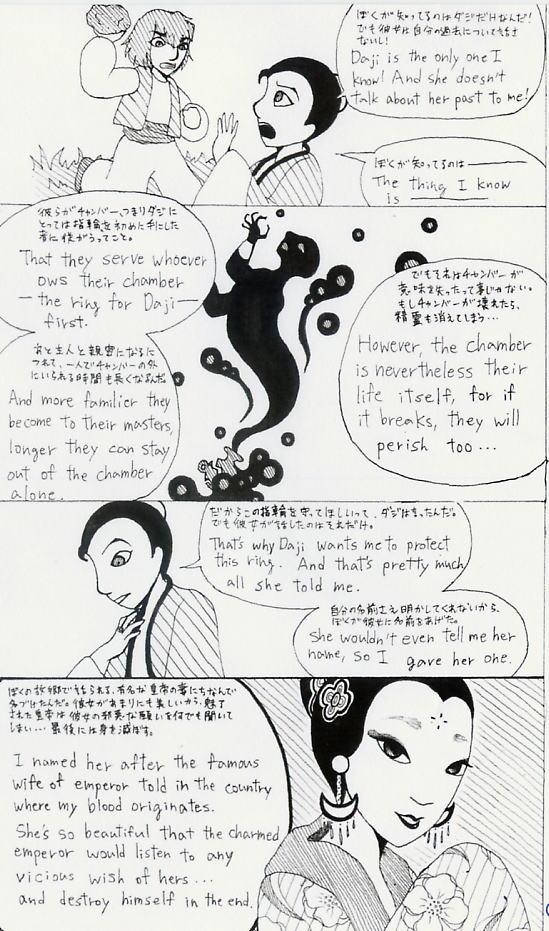 ぼくが知ってるのはダジだけなんだ!
でも彼女は自分の過去について話さ
ないし!
Daji is the only one I
know! And she doesn't
talk about her past to me!
ぼくが知ってるのは
The thing I know
is
彼らがチャンバー、つまりダジに
とっては指輪を初めに手にした
者に従がうってこと。
That they serve whoever
ows their chamber
— the ring for Daji —
first.
主人と親密になるに
つれて、一人でチャンバーの外
にいられる時間も長くなるんだ
And more familier they
become to their masters,
longer they can stay
out of the chamber
alone.
でもそれはチャンバーが
意味を失ったって事じゃない。
もしチャンバーが壊れたら、
精霊も消えてしまう…
However, the chamber
is nevertheless their
life itself, for if
it breaks, they will
perish too ...
だからこの指輪を守ってほしいって、ダジは言ったんだ。
でも彼女が話したのはそれだけ。
That's why Daji wants me to protect
this ring. And that's pretty much
all she told me.
自分の名前さえ明かしてくれないから、
ぼくが彼女に名前をあげた。
She wouldn't even tell me her
name, so I gave her one.
ぼくの故郷で語られる、有名な皇帝の妻にちなんで
名づけたんだ。彼女があまりにも美しいから、魅了
された皇帝は彼女の邪悪な願いを何でも聞いて
しまい… 最後には身を滅ぼす。
I named her after the famous
wife of emperor told in the country
where my blood originates.
She's so beautiful that the charmed
emperor would listen to any
vicious wish of hers ...
and destroy himself in the end.